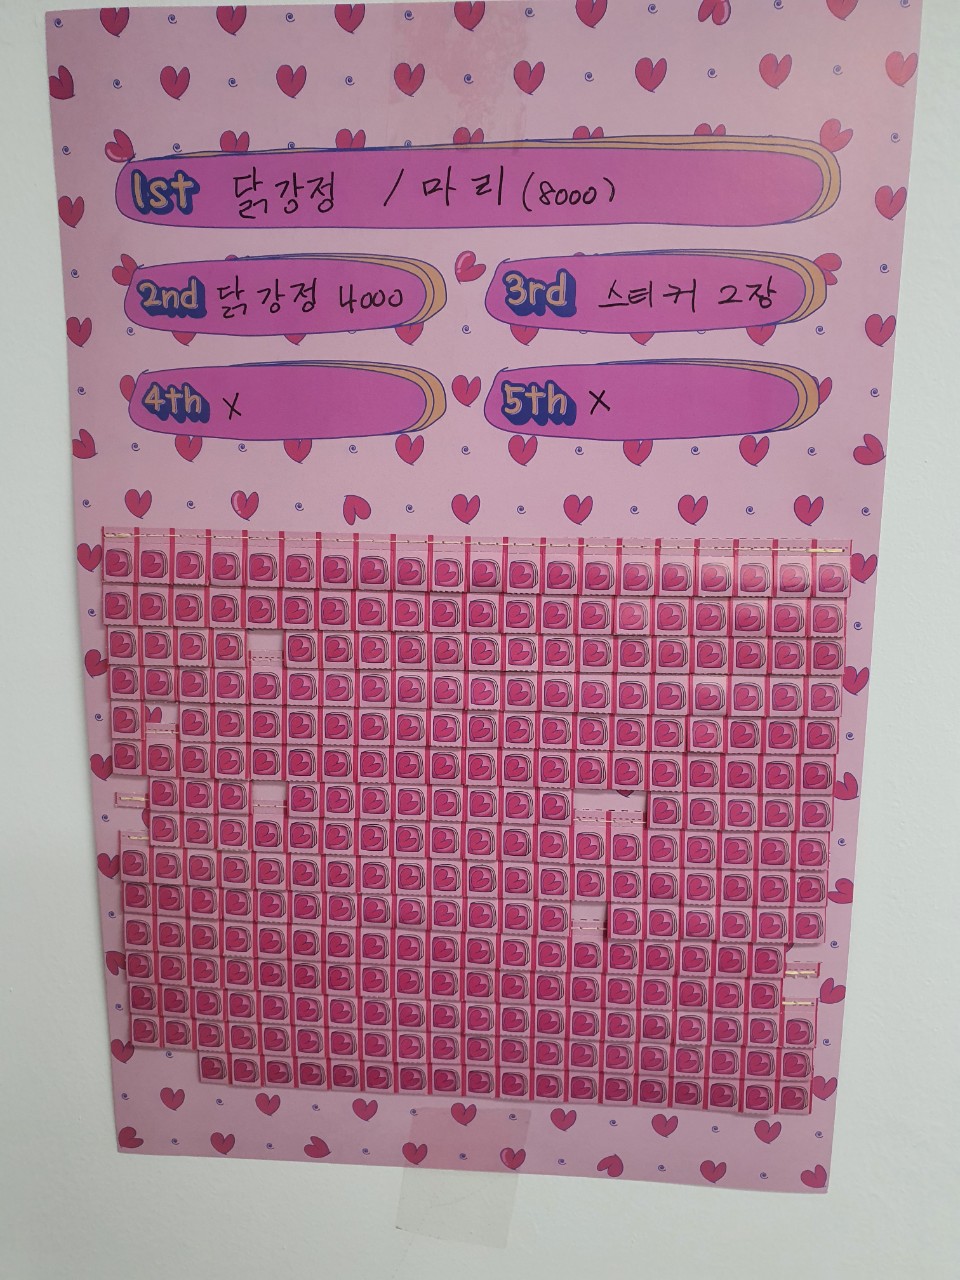 1st 닭강정 1마리 (8000)
2nd 닭강정 4000
3rd 스티커 2장
4th X
5th X